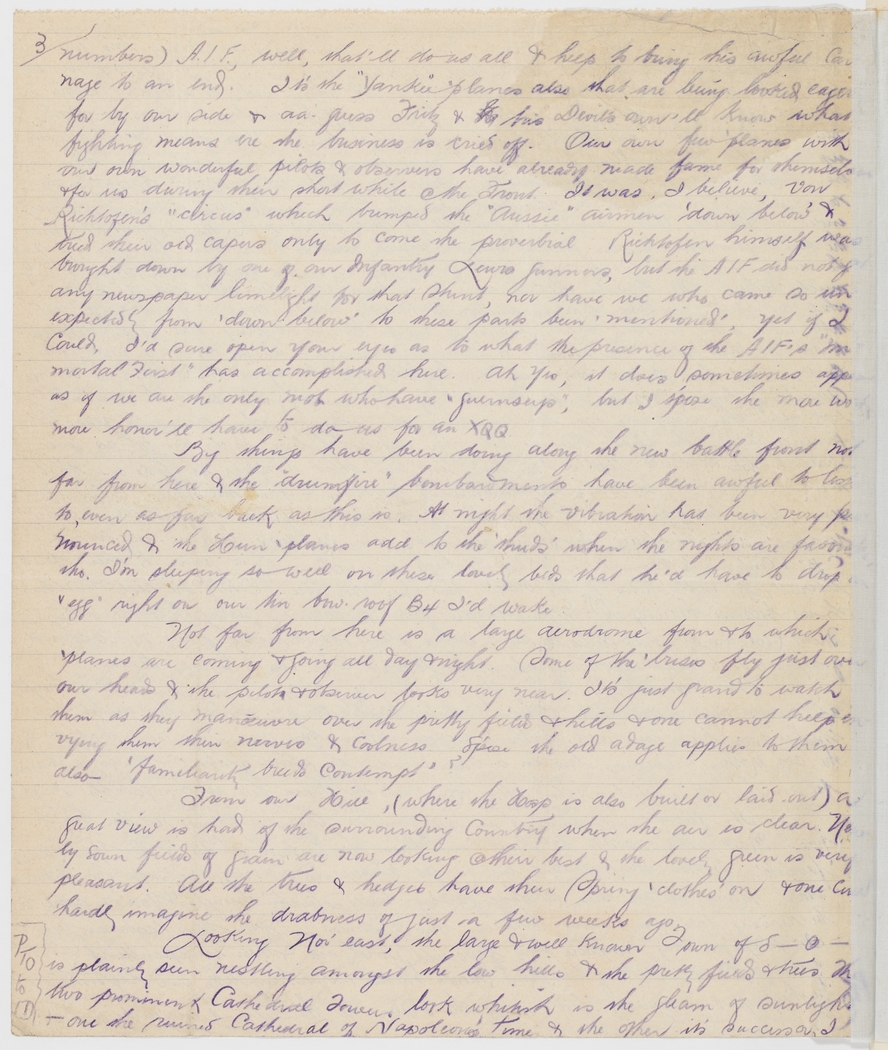 3/ numbers) A.I.F., well, that'll do us all & help to bring this awful Car
nage to an end. It's the "Yankee" planes also that are being looked eager
for by our side & aa. guess Fritz & his Devil's own 'll know what
fighting means ere the business is cried off. Our own few 'planes with
our own wonderful pilots & observers have already made fame for themselv
& for us during their short while @ the Front. It was, I believe, Von
Richtofen's "circus" which bumped the "Aussie" airmen 'down below' &
tried their old capers only to come the proverbial Richtofen himself was
bought down by one of our Infantry Lewis gunners, but the A.I.F. did not g
any newspaper limelight for that stunt, nor have we who came so un
expectedly from 'down below' to these parts been 'mentioned', yet if I
could, I'd sure open your eyes as to what the presence of the A.I.F.'s "Im
mortal First" has accomplished here. Ah Yes, it does sometimes appe
as if we are the only mob who have "guernseys", but I s'pose the more wo
more honor'll have to do us for an XQQ
Big things have been doing along the new battle front not
far from here & the "drumfire" bombardments have been awful to list
to, even as far back as this is. At night the vibration has been very p
nounced & the Hun 'planes add to the 'thuds' when the nights are favor
tho. I'm sleeping so well on these lovely beds that he'd have to drop
"egg" right on our tin bow roof B4 I'd wake.
Not far from here is a large aerodrome from & to which
'planes are coming & going all day & night. Some of the 'buses fly just over
our heads & the pilot & observer looks very near. It's just grand to watch
them as they manœuvre over the pretty field & hills & one cannot help e
vying them their nerves & coolness. S'pose the old adage applies to them
also 'familiarity breeds contempt' ?
From our Hill, (where the Hosp is also built or laid out) a
great view is had of the surrounding Country when the air is clear. Ne
ly sown fields of grain are now looking @ their best & the lovely green is very
pleasant. All the trees & hedges have their Spring 'clothes' on & one can
hardly imagine the drabness of just a few weeks ago.
Looking Nor'east, the large & well known Town of S — O —
is plainly seen nestling amongst the low hills & the pretty fields & trees. Th
two prominent Cathedral Towers look whitish is the gleam of sunligh
— one the ruined Cathedral of Napoleon's time & the other it's successor. I
PTO
to
①